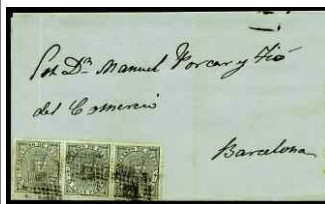 Sor Dn Manuel Porcar y Tió
del Comercio
Barcelona